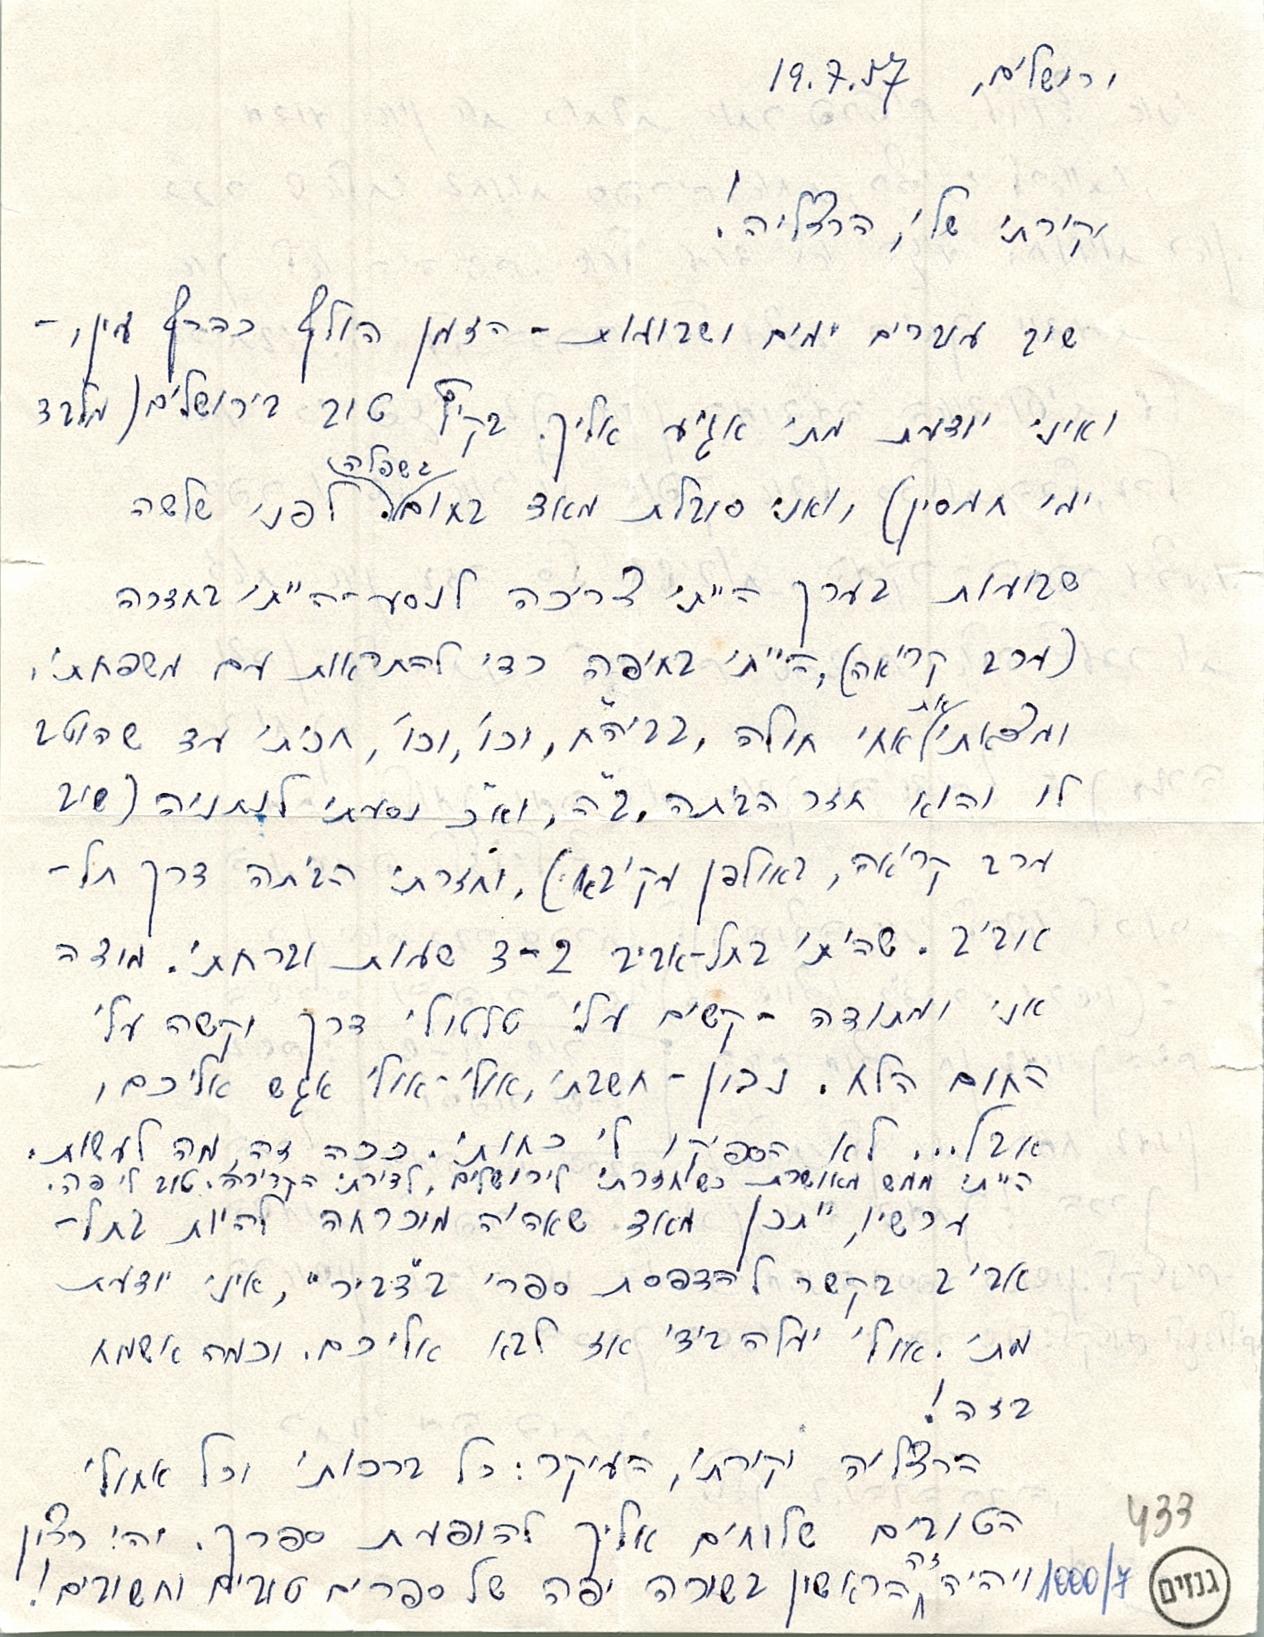 ירושלים, 19.7.57
יקירתי שלי, הרצליה!
שוב עוברים ימים ושבועות - הזמן הולך כהרף עין, -
ואיני יודעת מתי אגיע אליך. בקיץ טוב בירושלים (מלבד
ימי חמסין), ואני סובלת מאד בחום בשפלה. לפני שלשה
שבועות בערך הייתי צריכה לנסוע - הייתי בחדרה
(ערב קריאה), הייתי בחיפה כדי להתראות עם משפחתי,
ומצאתי את אחי חולה, בביה"ח, וכו', וכו', חכיתי עד שהוטב
לו והוא חזר הביתה, ב"ה, ואח"כ נסעתי לנתניה (שוב
ערב קריאה, באולפן עקיבא), וחזרתי הביתה דרך תל-
אביב. שהיתי בתל-אביב 2-3 שעות וברחתי. מודה
אני ומתודה - קשים עלי טלטולי דרך וקשה עלי
החום הלח. נכון - חשבתי, אולי-אולי אגש אליכם,
אבל... לא הספיקו לי כחותי. ככה זה, מה לעשות.
הייתי ממש מאושרת כשחזרתי לירושלים, לדירתי הקרירה. טוב לי פה.
עכשיו, ייתכן מאד שאהיה מוכרחה להיות בתל-
אביב בקשר להדפסת ספרי ב"דביר", איני יודעת
מתי. אולי יעלה בידי אז לבא אליכם. וכמה אשמח
בזה!
הרצליה יקירתי, העיקר: כל ברכותי וכל אחולי
הטובים שלוחים אליך להופעת ספרך. יהי רצון
ויהיה זה הראשון בשורה יפה של ספרים טובים וחשובים!
433
1000/7
גנזים